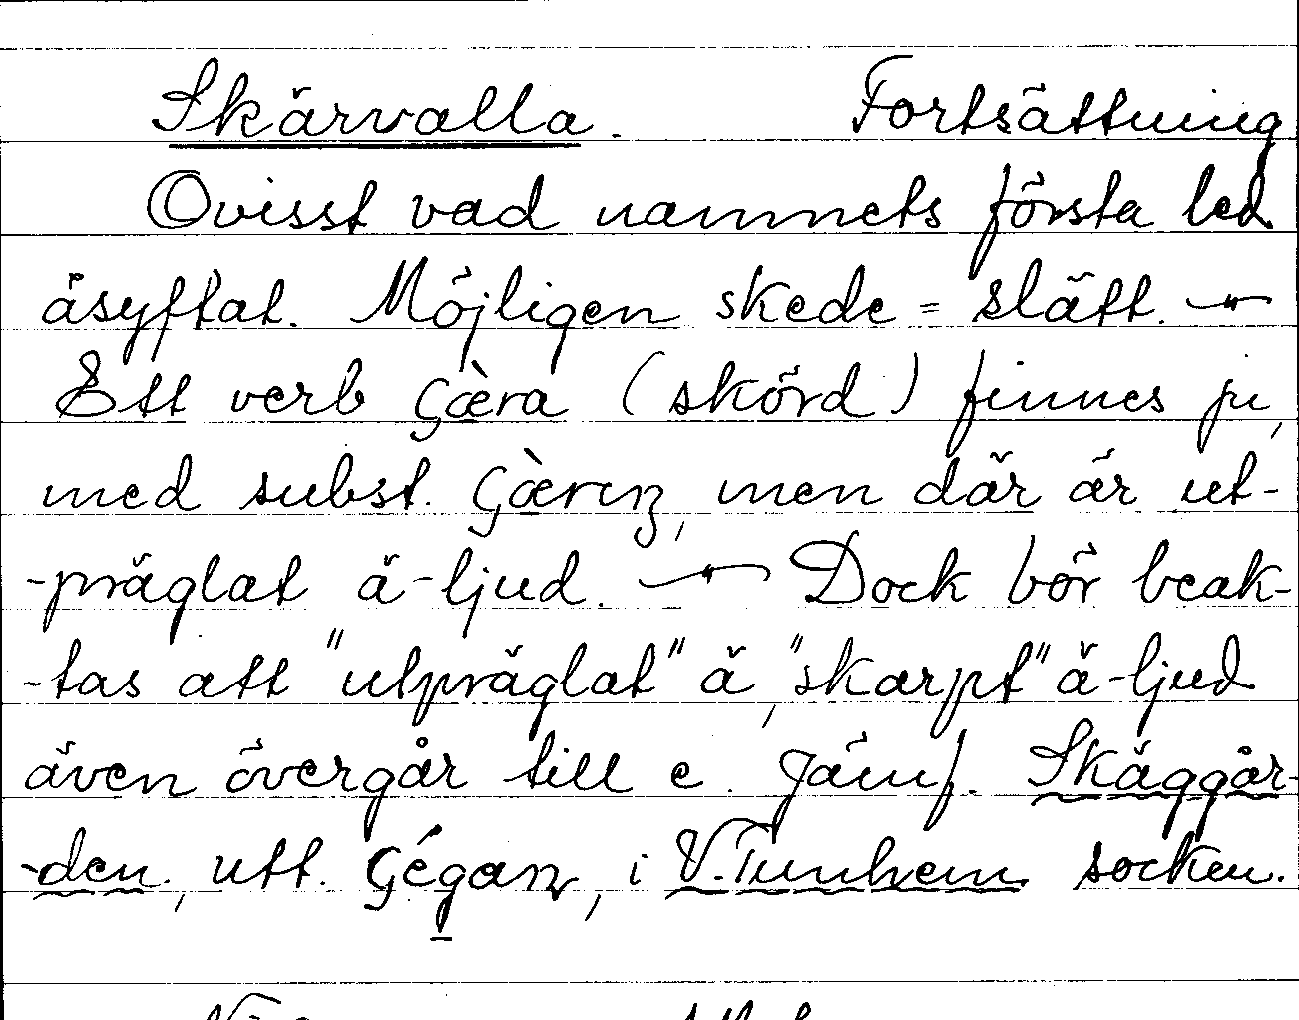 Skärvalla. Fortsättning
Ovisst vad namnets första led
åsyftat. Möjligen skede = slätt. —
Ett verb çæ̀ra (skörd) finnes ju,
med subst. çæ̀rıŋ, men där är ut-
-präglat ä-ljud. — Dock bör beak-
-tas att "utpräglat" ä, "skarpt" ä-ljud
även övergår till e. Jämf. Skäggår-
-den, utt. çégan, i V. Tunhem socken.